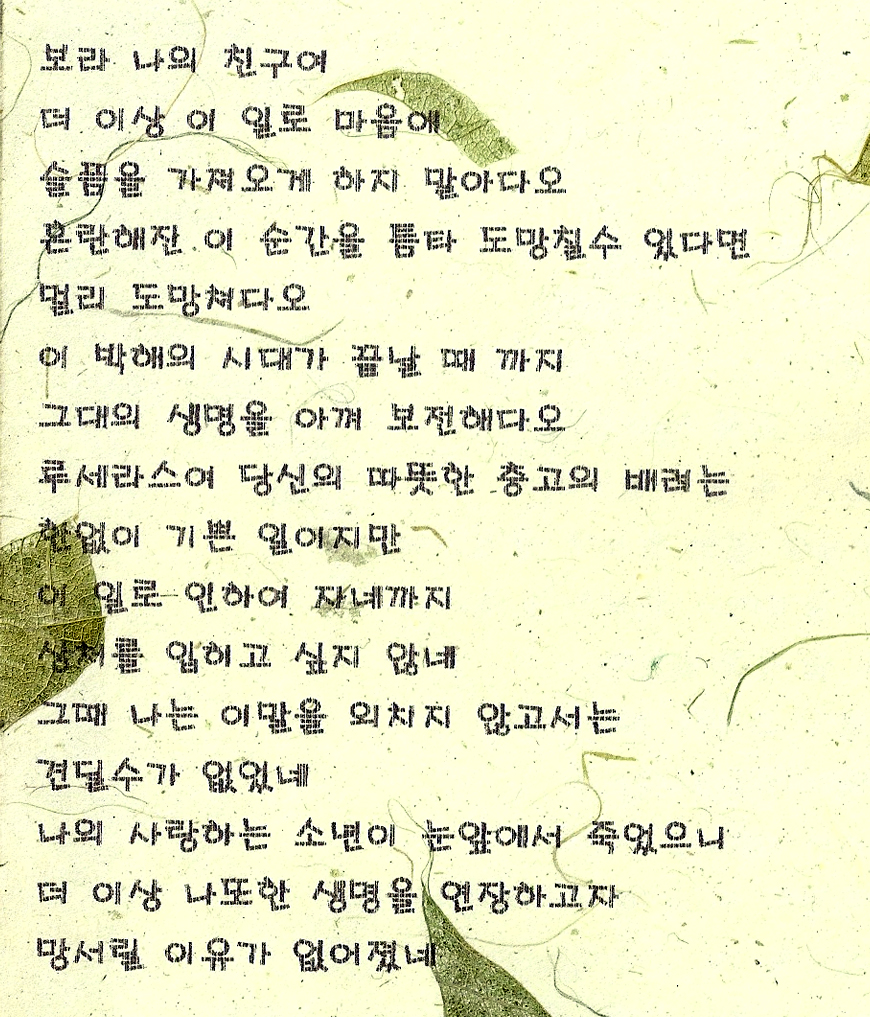 보라 나의 친구여
더 이상 이 일로 마음에
슬픔을 가져오게 하지 말아다오
혼란해진 이 순간을 틈타 도망칠수 있다면
멀리 도망쳐다오
이 박해의 시대가 끝날 때 까지
그대의 생명을 아껴 보전해다오
루세라스여 당신의 따뜻한 충고의 배려는
한없이 기쁜 일이지만
이 일로 인하여 자네까지
상처를 입히고 싶지 않네
그때 나는 이말을 외치지 않고서는
견딜수가 없었네
나의 사랑하는 소년이 눈앞에서 죽었으니
더 이상 나또한 생명을 연장하고자
망서릴 이유가 없어졌네